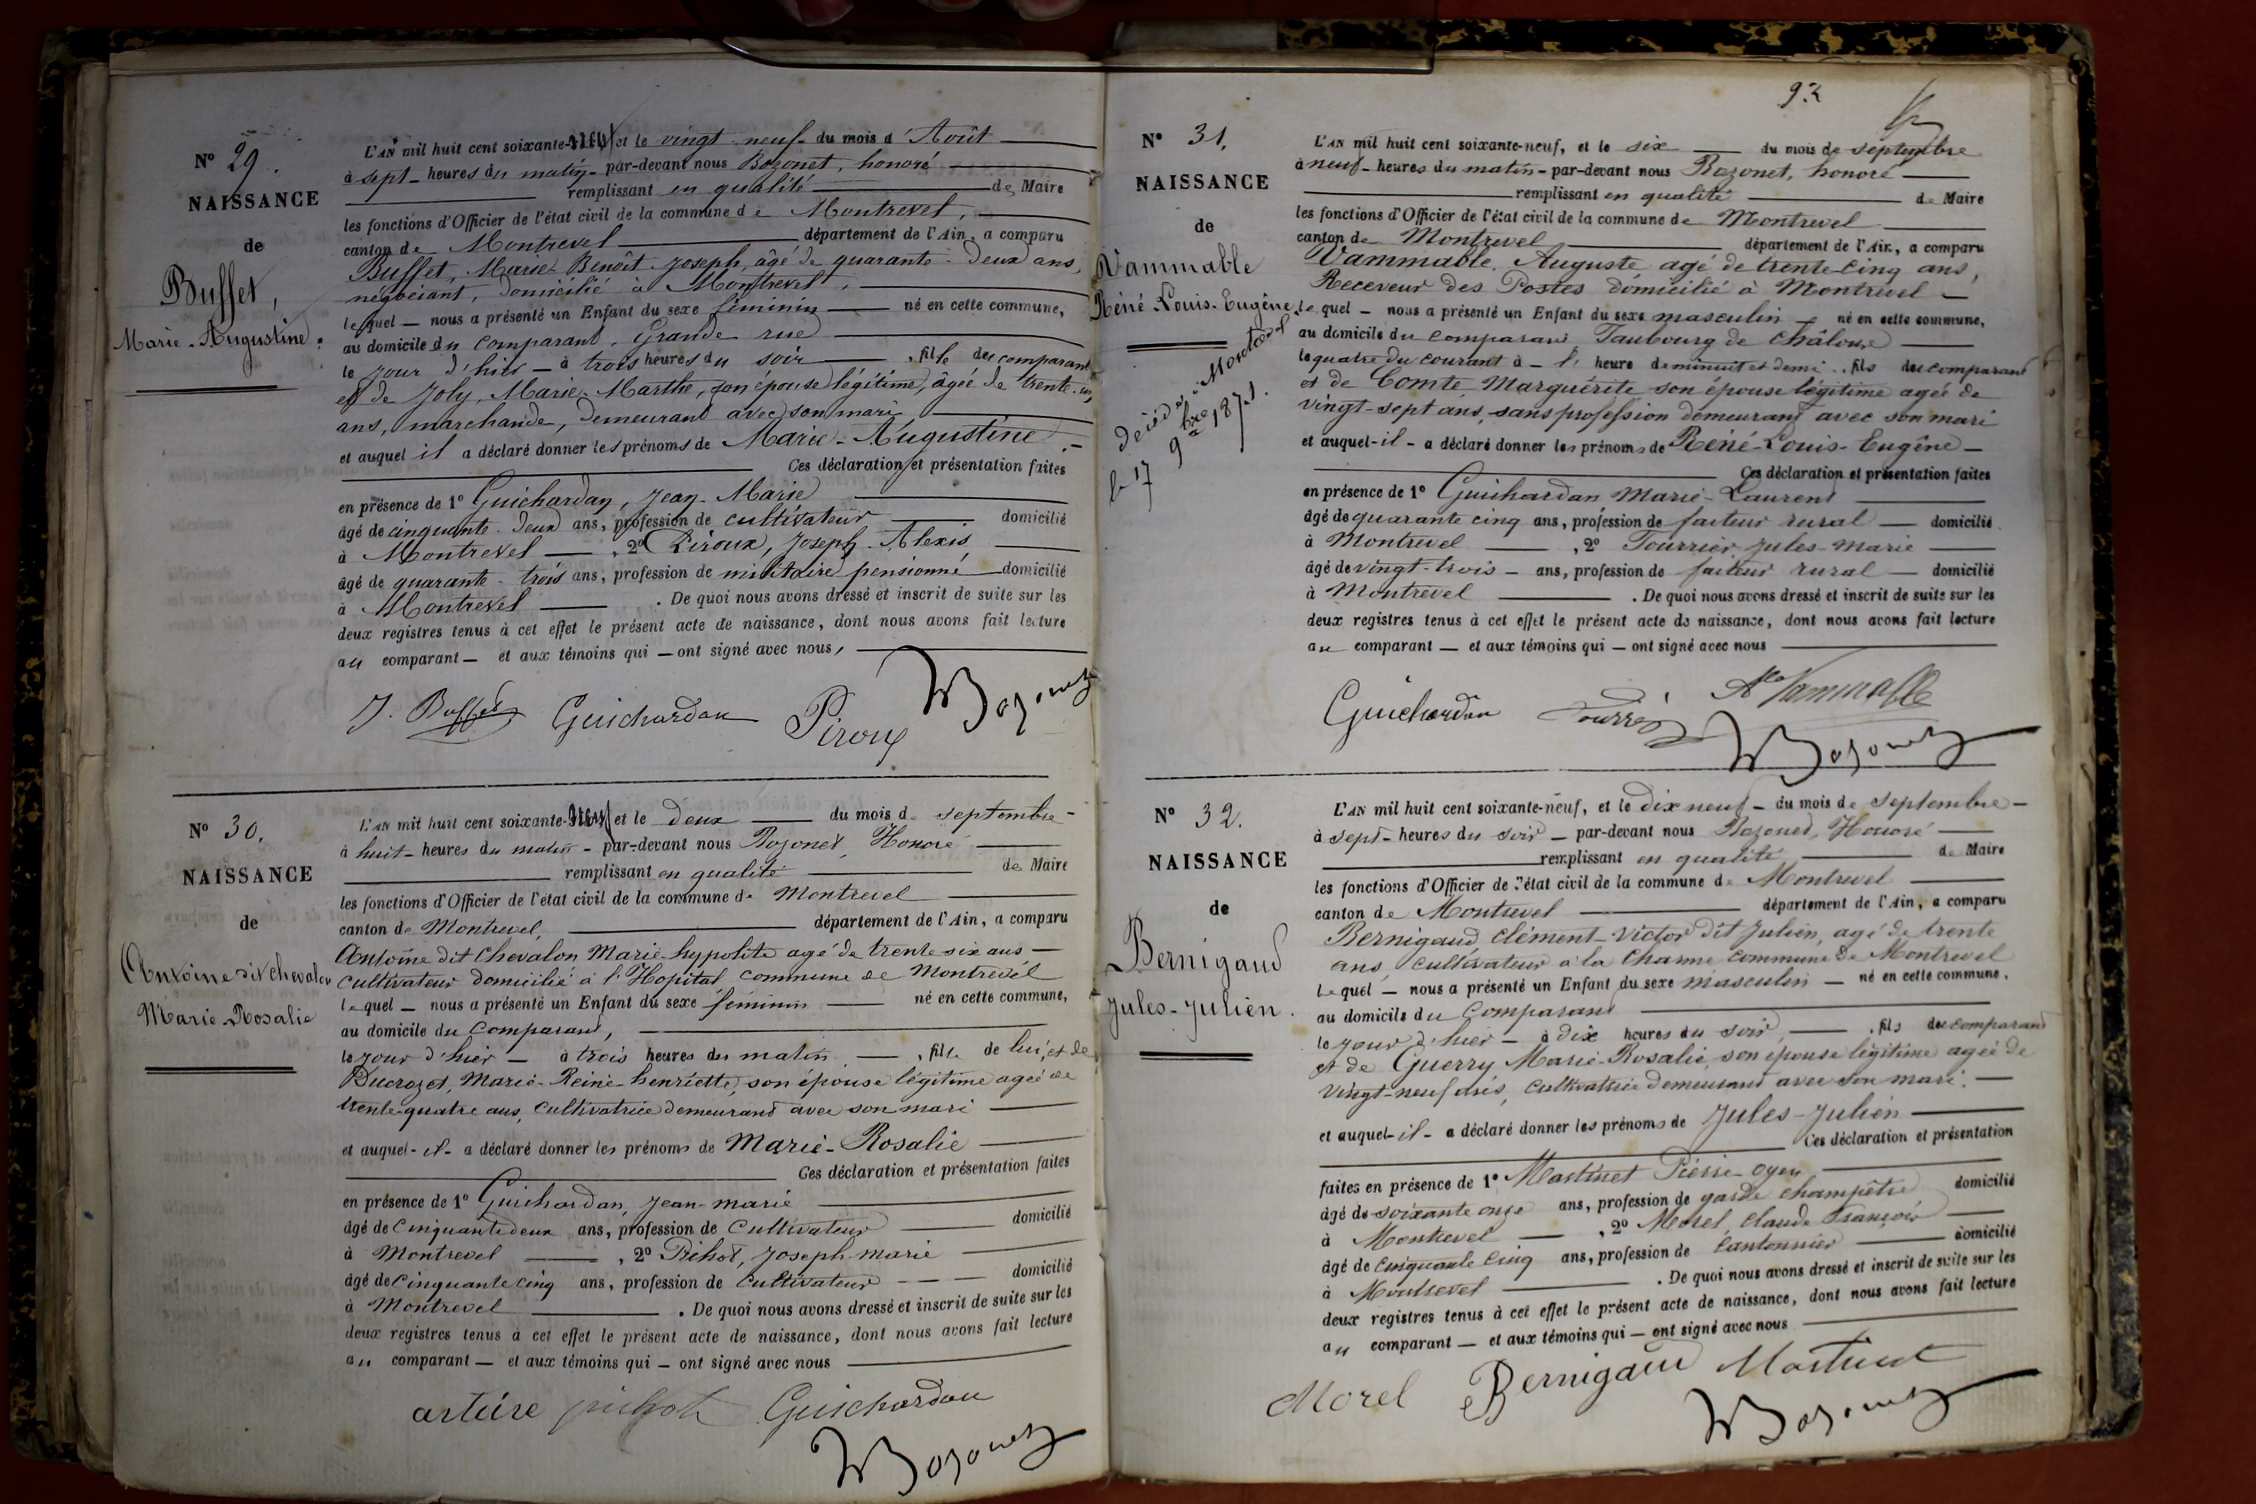 N° 29.
NAISSANCE
de
Buffet,
Marie-Augustine.
L'AN mil huit cent soixante-neuf et le vingt-neuf du mois d'Août
à sept heures du matin par-devant nous Bozonet, honoré
remplissant en qualité de Maire
les fonctions d'Officier de l'état civil de la commune de Montrevel,
canton de Montrevel département de l'Ain, a comparu
Buffet, Marie-Benoît-Joseph, âgé de quarante-deux ans,
négociant, domicilié à Montrevel,
lequel nous a présenté un Enfant du sexe féminin né en cette commune,
au domicile du comparant, Grande rue
le jour d'hier à trois heures du soir, fille du comparant
et de Joly, Marie-Marthe, son épouse légitime, âgée de trente-un
ans, marchande, demeurant avec son mari,
et auquel il a déclaré donner les prénoms de Marie-Augustine.
Ces déclaration et présentation faites
en présence de 1° Guichardan, Jean-Marie
âgé de cinquante-deux ans, profession de cultivateur domicilié
à Montrevel, 2° Piroux, Joseph-Alexis,
âgé de quarante-trois ans, profession de militaire pensionné domicilié
à Montrevel. De quoi nous avons dressé et inscrit de suite sur les
deux registres tenus à cet effet le présent acte de naissance, dont nous avons fait lecture
au comparant et aux témoins qui ont signé avec nous,
J. Buffet Guichardan Piroux Bozonet
N° 30.
NAISSANCE
de
Antoine dit Chevalon
Marie-Rosalie
L'AN mil huit cent soixante-neuf et le deux du mois de septembre
à huit heures du matin par-devant nous Bozonet, Honoré
remplissant en qualité de Maire
les fonctions d'Officier de l'état civil de la commune de Montrevel
canton de Montrevel, département de l'Ain, a comparu
Antoine dit Chevalon Marie-hypolite agé de trente six ans
cultivateur domicilié à l'Hopital, commune de Montrevel
lequel nous a présenté un Enfant du sexe féminin né en cette commune,
au domicile du comparant,
le jour d'hier à trois heures du matin, fille de lui, et de
Ducrozet, Marie-Reine-henriette, son épouse légitime agée de
trente-quatre ans, cultivatrice demeurant avec son mari
et auquel il a déclaré donner les prénoms de Marie-Rosalie
Ces déclaration et présentation faites
en présence de 1° Guichardan, Jean-marie
âgé de cinquante deux ans, profession de cultivateur domicilié
à Montrevel, 2° Pihot, Joseph-marie
âgé de cinquante cinq ans, profession de cultivateur domicilié
à Montrevel. De quoi nous avons dressé et inscrit de suite sur les
deux registres tenus à cet effet le présent acte de naissance, dont nous avons fait lecture
au comparant et aux témoins qui ont signé avec nous
Guichardan
Bozonet
93
N° 31.
NAISSANCE
de
Vammable
Réné-Louis-Eugène
décédé à Montrevel
le 17 9bre 1871.
L'AN mil huit cent soixante-neuf, et le six du mois de septembre
à neuf heures du matin par-devant nous Bozonet, honoré
remplissant en qualité de Maire
les fonctions d'Officier de l'état civil de la commune de Montrevel
canton de Montrevel département de l'Ain, a comparu
Vammable, Auguste, agé de trente-cinq ans,
Receveur des Postes domicilié à Montrevel
lequel nous a présenté un Enfant du sexe masculin né en cette commune,
au domicile du comparant Faubourg de Châlons
le quatre du courant à l'heure de minuit et demi, fils du comparant
et de Comte, Marguérite son épouse légitime agée de
vingt-sept ans, sans profession demeurant avec son mari
et auquel il a déclaré donner les prénoms de Réné-Louis-Eugène
Ces déclaration et présentation faites
en présence de 1° Guichardan Marie-Laurent
âgé de quarante cinq ans, profession de facteur rural domicilié
à Montrevel, 2° Tourrier, Jules-marie
âgé de vingt-trois ans, profession de facteur rural domicilié
à Montrevel. De quoi nous avons dressé et inscrit de suite sur les
deux registres tenus à cet effet le présent acte de naissance, dont nous avons fait lecture
au comparant et aux témoins qui ont signé avec nous
Guichardan Vammable
Bozonet
N° 32.
NAISSANCE
de
Bernigaud
Jules-Julien.
L'AN mil huit cent soixante-neuf, et le dix neuf du mois de septembre
à sept heures du soir par-devant nous Bozonet, Honoré
remplissant en qualité de Maire
les fonctions d'Officier de l'état civil de la commune de Montrevel
canton de Montrevel département de l'Ain, a comparu
Bernigaud, Clément-Victor dit Julien, agé de trente
ans, cultivateur à la Charme commune de Montrevel
lequel nous a présenté un Enfant du sexe masculin né en cette commune,
au domicile du comparant
le jour d'hier à dix heures du soir, fils du comparant
et de Guerry Marie-Rosalie, son épouse légitime agée de
vingt-neuf ans, cultivatrice demeurant avec son mari.
et auquel il a déclaré donner les prénoms de Jules-Julien
Ces déclaration et présentation
faites en présence de 1° Martinet Pierre
âgé de soixante onze ans, profession de garde champêtre domicilié
à Montrevel, 2° Morel, Claude François
âgé de cinquante cinq ans, profession de cantonnier domicilié
à Montrevel. De quoi nous avons dressé et inscrit de suite sur les
deux registres tenus à cet effet le présent acte de naissance, dont nous avons fait lecture
au comparant et aux témoins qui ont signé avec nous
Morel Bernigaud Martinet
Bozonet